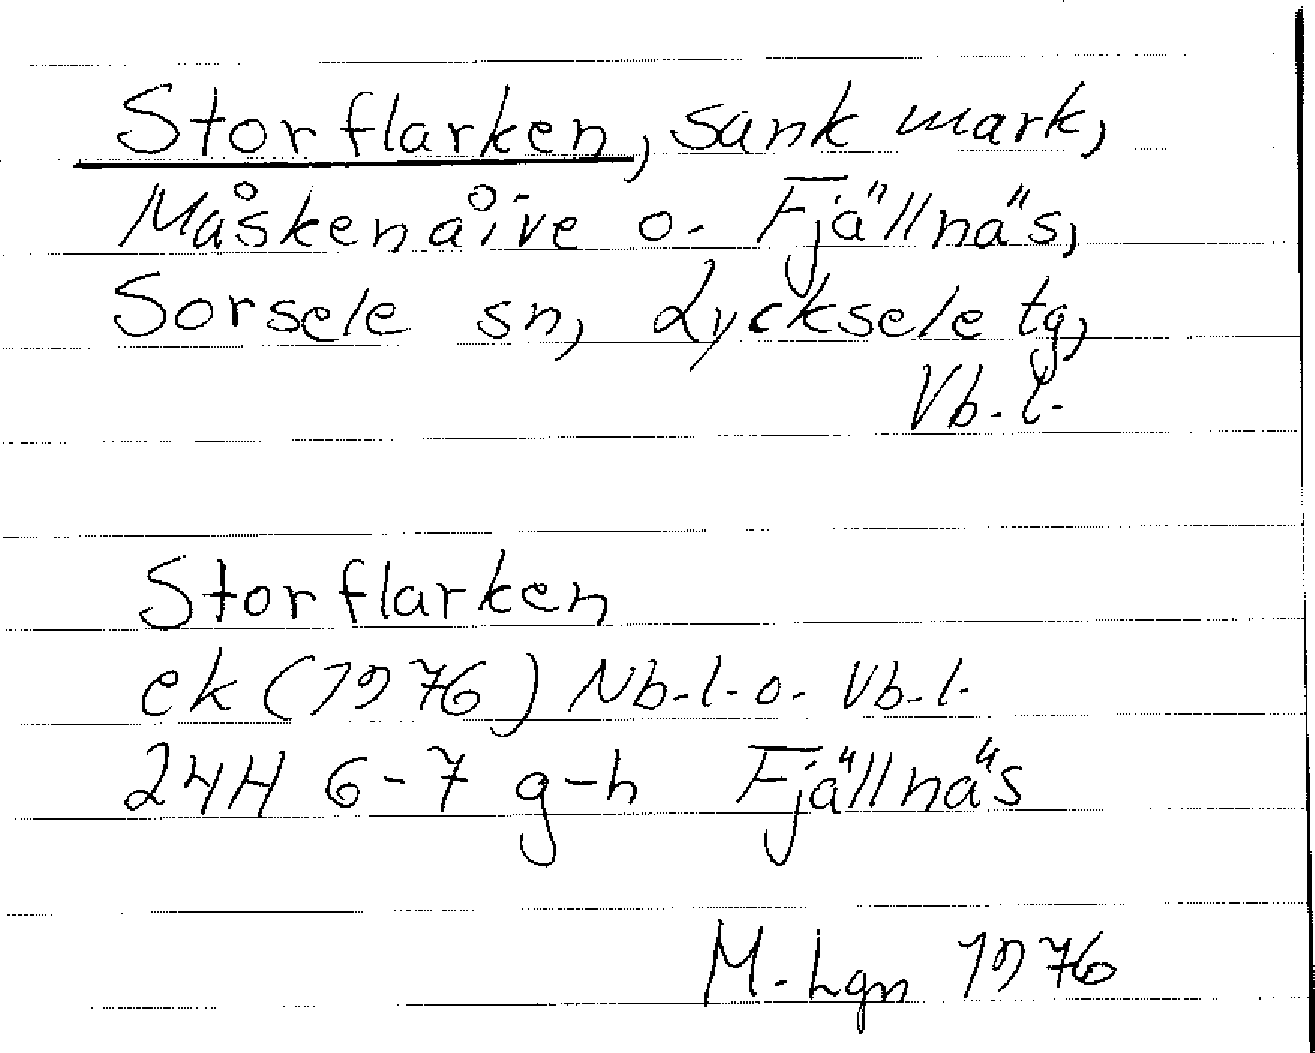 Storflarken, sank mark,
Måskenåive o. Fjällnäs,
Sorsele sn, Lycksele tg,
Vb. l.
Storflarken
ek (1976) Nb. l. o. Vb. l.
24H 6-7 g-h Fjällnäs
M. Lgn 1976